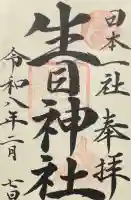 奉拝
日本一社
生目神社
令和八年一月七日